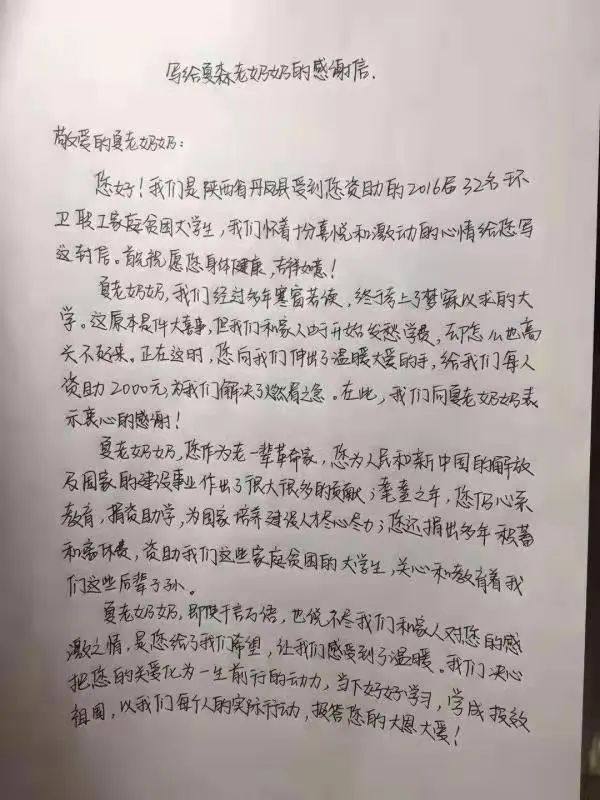 写给夏森老奶奶的感谢信.
敬爱的夏老奶奶:
您好!我们是陕西省丹凤县受到您资助的2016后32名环
卫职工家庭贫困大学生,我们怀着十份喜悦和激动的心情给您写
这封信。首先祝愿您身体健康,吉祥如意!
夏老奶奶,我们经过多年寒窗苦读,终于考上了梦寐以求的大
学。这原本是件大喜事,但我们和家人由于开始发愁学费,却怎么也高
兴不起来。正在这时,您向我们伸出了温暖大爱的手,给我们每人
资助2000元,为我们解决了燃眉之急。在此,我们向夏老奶奶表
示衷心的感谢!
夏老奶奶,您作为老一辈革命家,您为人民和新中国的解放
及国家的建设事业作出了很大很多的贡献;耄耋之年,您仍心系
教育,捐资助学,为国家培养建设人才尽心尽力;您还捐出多年积蓄
和 费,资助我们这些家庭贫困的大学生,关心和教育着我
们这些后辈子孙。
夏老奶奶,即使千言万语,也说不尽我们和家人对您的感
激之情,是您给了我们希望,让我们感受到了温暖。我们决心
把您的关爱化为一生前行的动力,当下好好学习,学成报效
祖国,以我们每个人的实际行动,报答您的大恩大爱!